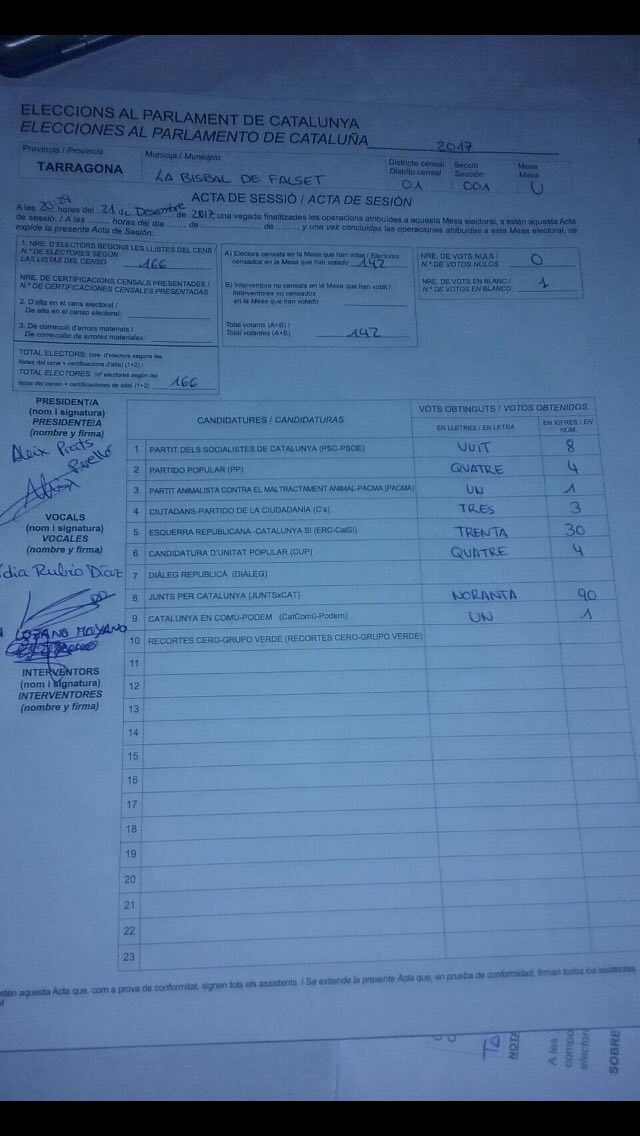 ELECCIONS AL PARLAMENT DE CATALUNYA
ELECCIONES AL PARLAMENTO DE CATALUÑA 2017
Província / Provincia
TARRAGONA
Municipi / Municipio
LA BISBAL DE FALSET
Districte censal
Distrito censal
01
Secció
Sección
001
Mesa
Mesa
U
ACTA DE SESSIÓ / ACTA DE SESIÓN
A les 20:24 hores del 21 de Desembre de 2017, una vegada finalitzades les operacions atribuïdes a aquesta Mesa electoral, s'estén aquesta Acta
de sessió: / A las ........ horas del día ........ de ........ de ........, y una vez concluidas las operaciones atribuidas a esta Mesa electoral, se
expide la presente Acta de Sesión:
1. NRE. D'ELECTORS SEGONS LES LLISTES DEL CENS /
N.º DE ELECTORES SEGÚN
LAS LISTAS DEL CENSO 166
NRE. DE CERTIFICACIONS CENSALS PRESENTADES /
N.º DE CERTIFICACIONES CENSALES PRESENTADAS
2. D'alta en el cens electoral /
De alta en el censo electoral:
3. De correcció d'errors materials /
De corrección de errores materiales:
TOTAL ELECTORS: (nre. d'electors segons les
llistes del cens + certificacions d'alta) (1+2) /
TOTAL ELECTORES: (nº electores según las
listas del censo + certificaciones de alta) (1+2) 166
A) Electors censats en la Mesa que han votat / Electores
censados en la Mesa que han votado 142
B) Interventors no censats en la Mesa que han votat /
Interventores no censados
en la Mesa que han votado
Total votants (A+B) /
Total votantes (A+B) 142
NRE. DE VOTS NULS /
N.º DE VOTOS NULOS 0
NRE. DE VOTS EN BLANC /
N.º DE VOTOS EN BLANCO 1
PRESIDENT/A
(nom i signatura)
PRESIDENTE/A
(nombre y firma)
VOCALS
(nom i signatura)
VOCALES
(nombre y firma)
dia Rubio Díaz
LOZANO MOYANO
INTERVENTORS
(nom i signatura)
INTERVENTORES
(nombre y firma)
CANDIDATURES / CANDIDATURAS
VOTS OBTINGUTS / VOTOS OBTENIDOS
EN LLETRES / EN LETRA
EN XIFRES / EN NÚM.
1 PARTIT DELS SOCIALISTES DE CATALUNYA (PSC-PSOE) VUIT 8
2 PARTIDO POPULAR (PP) QUATRE 4
3 PARTIT ANIMALISTA CONTRA EL MALTRACTAMENT ANIMAL-PACMA (PACMA) UN 1
4 CIUTADANS-PARTIDO DE LA CIUDADANÍA (C's) TRES 3
5 ESQUERRA REPUBLICANA -CATALUNYA SÍ (ERC-CatSí) TRENTA 30
6 CANDIDATURA D'UNITAT POPULAR (CUP) QUATRE 4
7 DIÀLEG REPUBLICÀ (DIÀLEG)
8 JUNTS PER CATALUNYA (JUNTSxCAT) NORANTA 90
9 CATALUNYA EN COMÚ-PODEM (CatComú-Podem) UN 1
10 RECORTES CERO-GRUPO VERDE (RECORTES CERO-GRUPO VERDE)
11
12
13
14
15
16
17
18
19
20
21
22
23
stén aquesta Acta que, com a prova de conformitat, signen tots els assistents. / Se extiende la presente Acta que, en prueba de conformidad, firman todos los asistentes
NOTA
A les
compo
elector
SOBRE